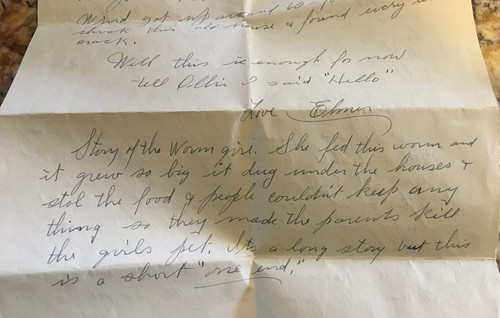 Wind got up around 60
shook this old house & found every
crack.
Well this is enough for now
tell Ollie I said "Hello"
Love Elmer
Story of the Worm girl. She fed this worm and
it grew so big it dug under the houses &
stol the food & people couldn't keep any
thing so they made the parents kill
the girls pet. Its a long story but this
is a short "one end,"